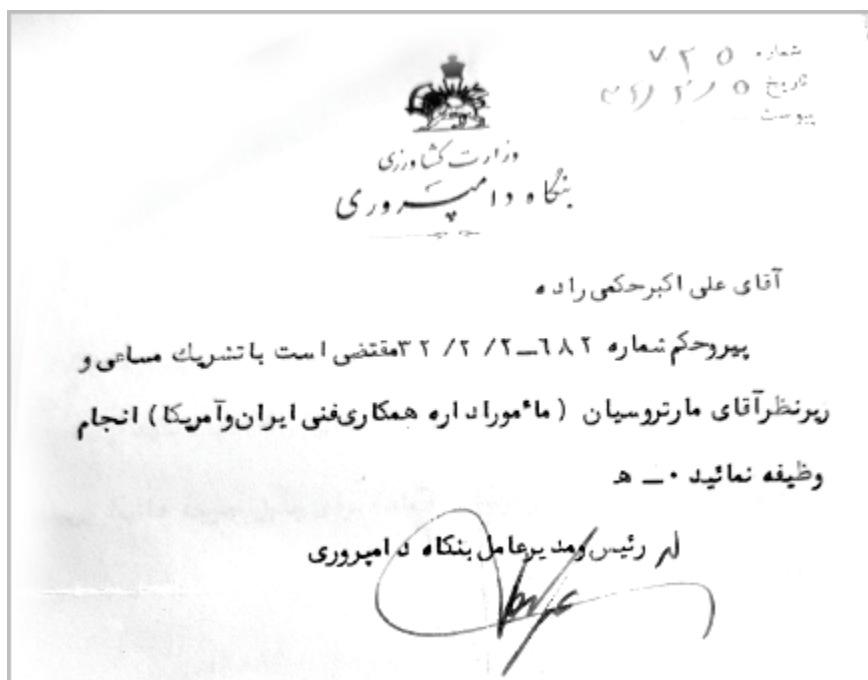 شماره ۷۲۵
تاریخ
پیوست
وزارت کشاورزی
بنگاه دامپروری
آقای علی اکبر حکمی زاده
پیرو حکم شماره ۶۸۲ــ۳۲/۲/۲ مقتضی است با تشریك مساعی و
زیرنظر آقای مارتروسیان (مأمور اداره همکاری فنی ایران و آمریکا) انجام
وظیفه نمائید ۰ ــ هـ
رئیس و مدیرعامل بنگاه دامپروری